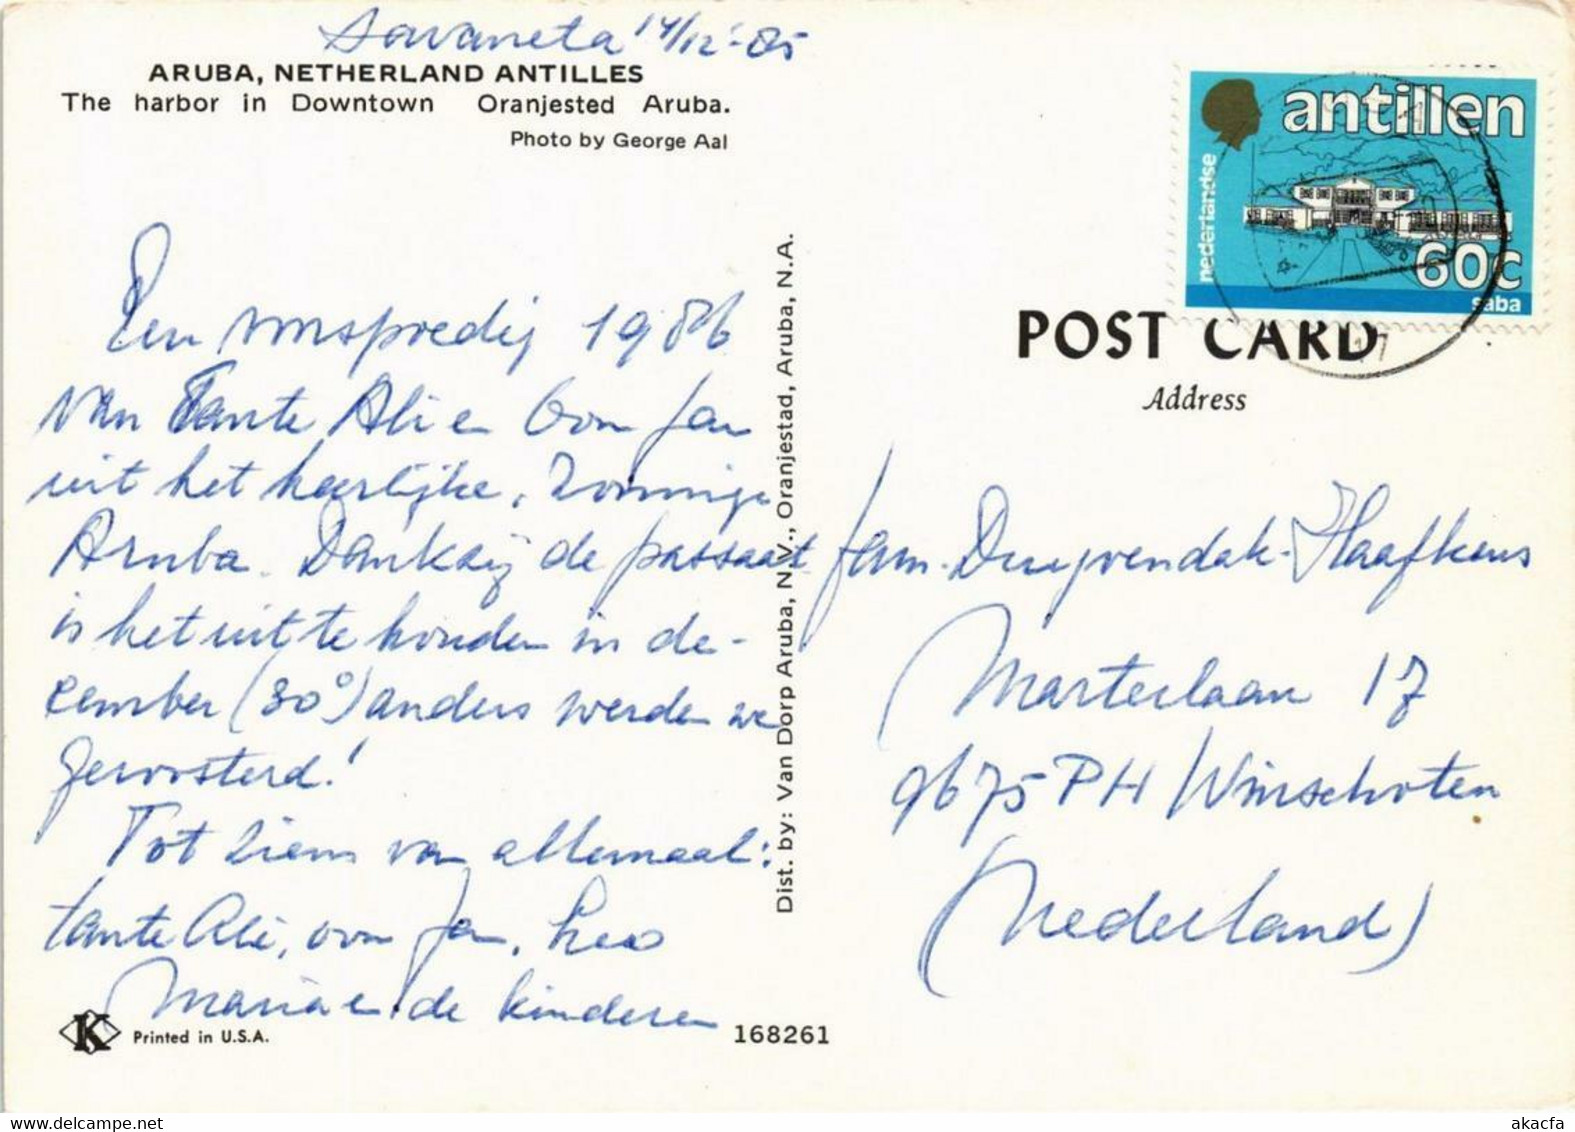 Savaneta 14/12-'85
ARUBA, NETHERLAND ANTILLES
The harbor in Downtown Oranjested Aruba.
Photo by George Aal
Een voorspoedig 1986
van Tante Ali en Oom Jan
uit het heerlijke, zonnige
Aruba. Dankzij de passaat
is het uit te houden in de-
cember (30°) anders werden we
geroosterd!
Tot ziens van allemaal:
tante Ali, oom Jan,
Maria en de kinderen
Printed in U.S.A.
168261
Dist. by: Van Dorp Aruba, N.V., Oranjestad, Aruba, N.A.
nederlandse
antillen
60c
saba
17
POST CARD
Address
fam. Duyvendak-Haafkens
Marterlaan 17
9675 PH Winschoten
(Nederland)
K
akacfa